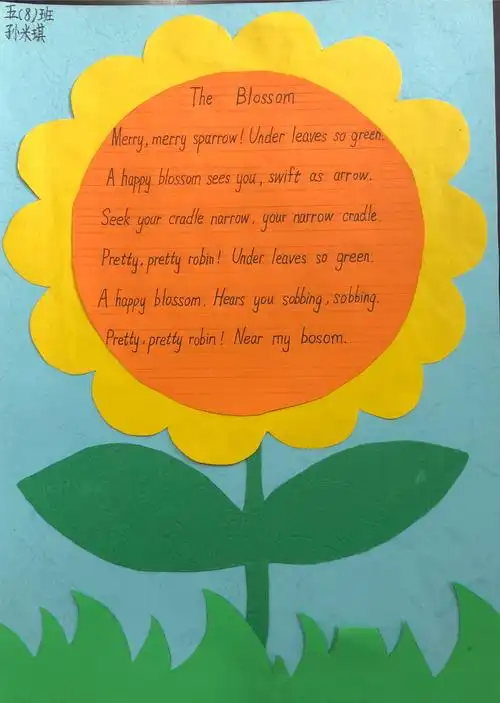 五(8)班
孙米琪
The Blossom
Merry, merry sparrow! Under leaves so green.
A happy blossom sees you, swift as arrow.
Seek your cradle narrow, your narrow cradle
Pretty, pretty robin! Under leaves so green.
A happy blossom. Hears you sobbing, sobbing.
Pretty, pretty robin! Near my bosom.